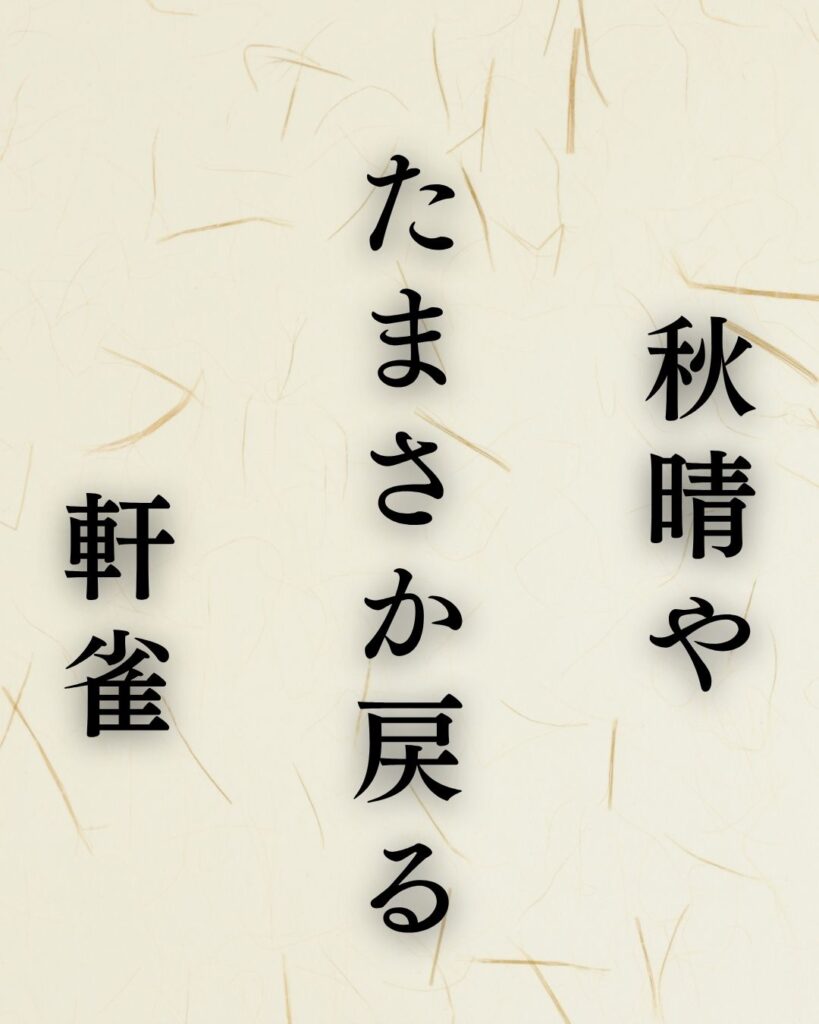 秋晴や
たまさか戻る
軒雀